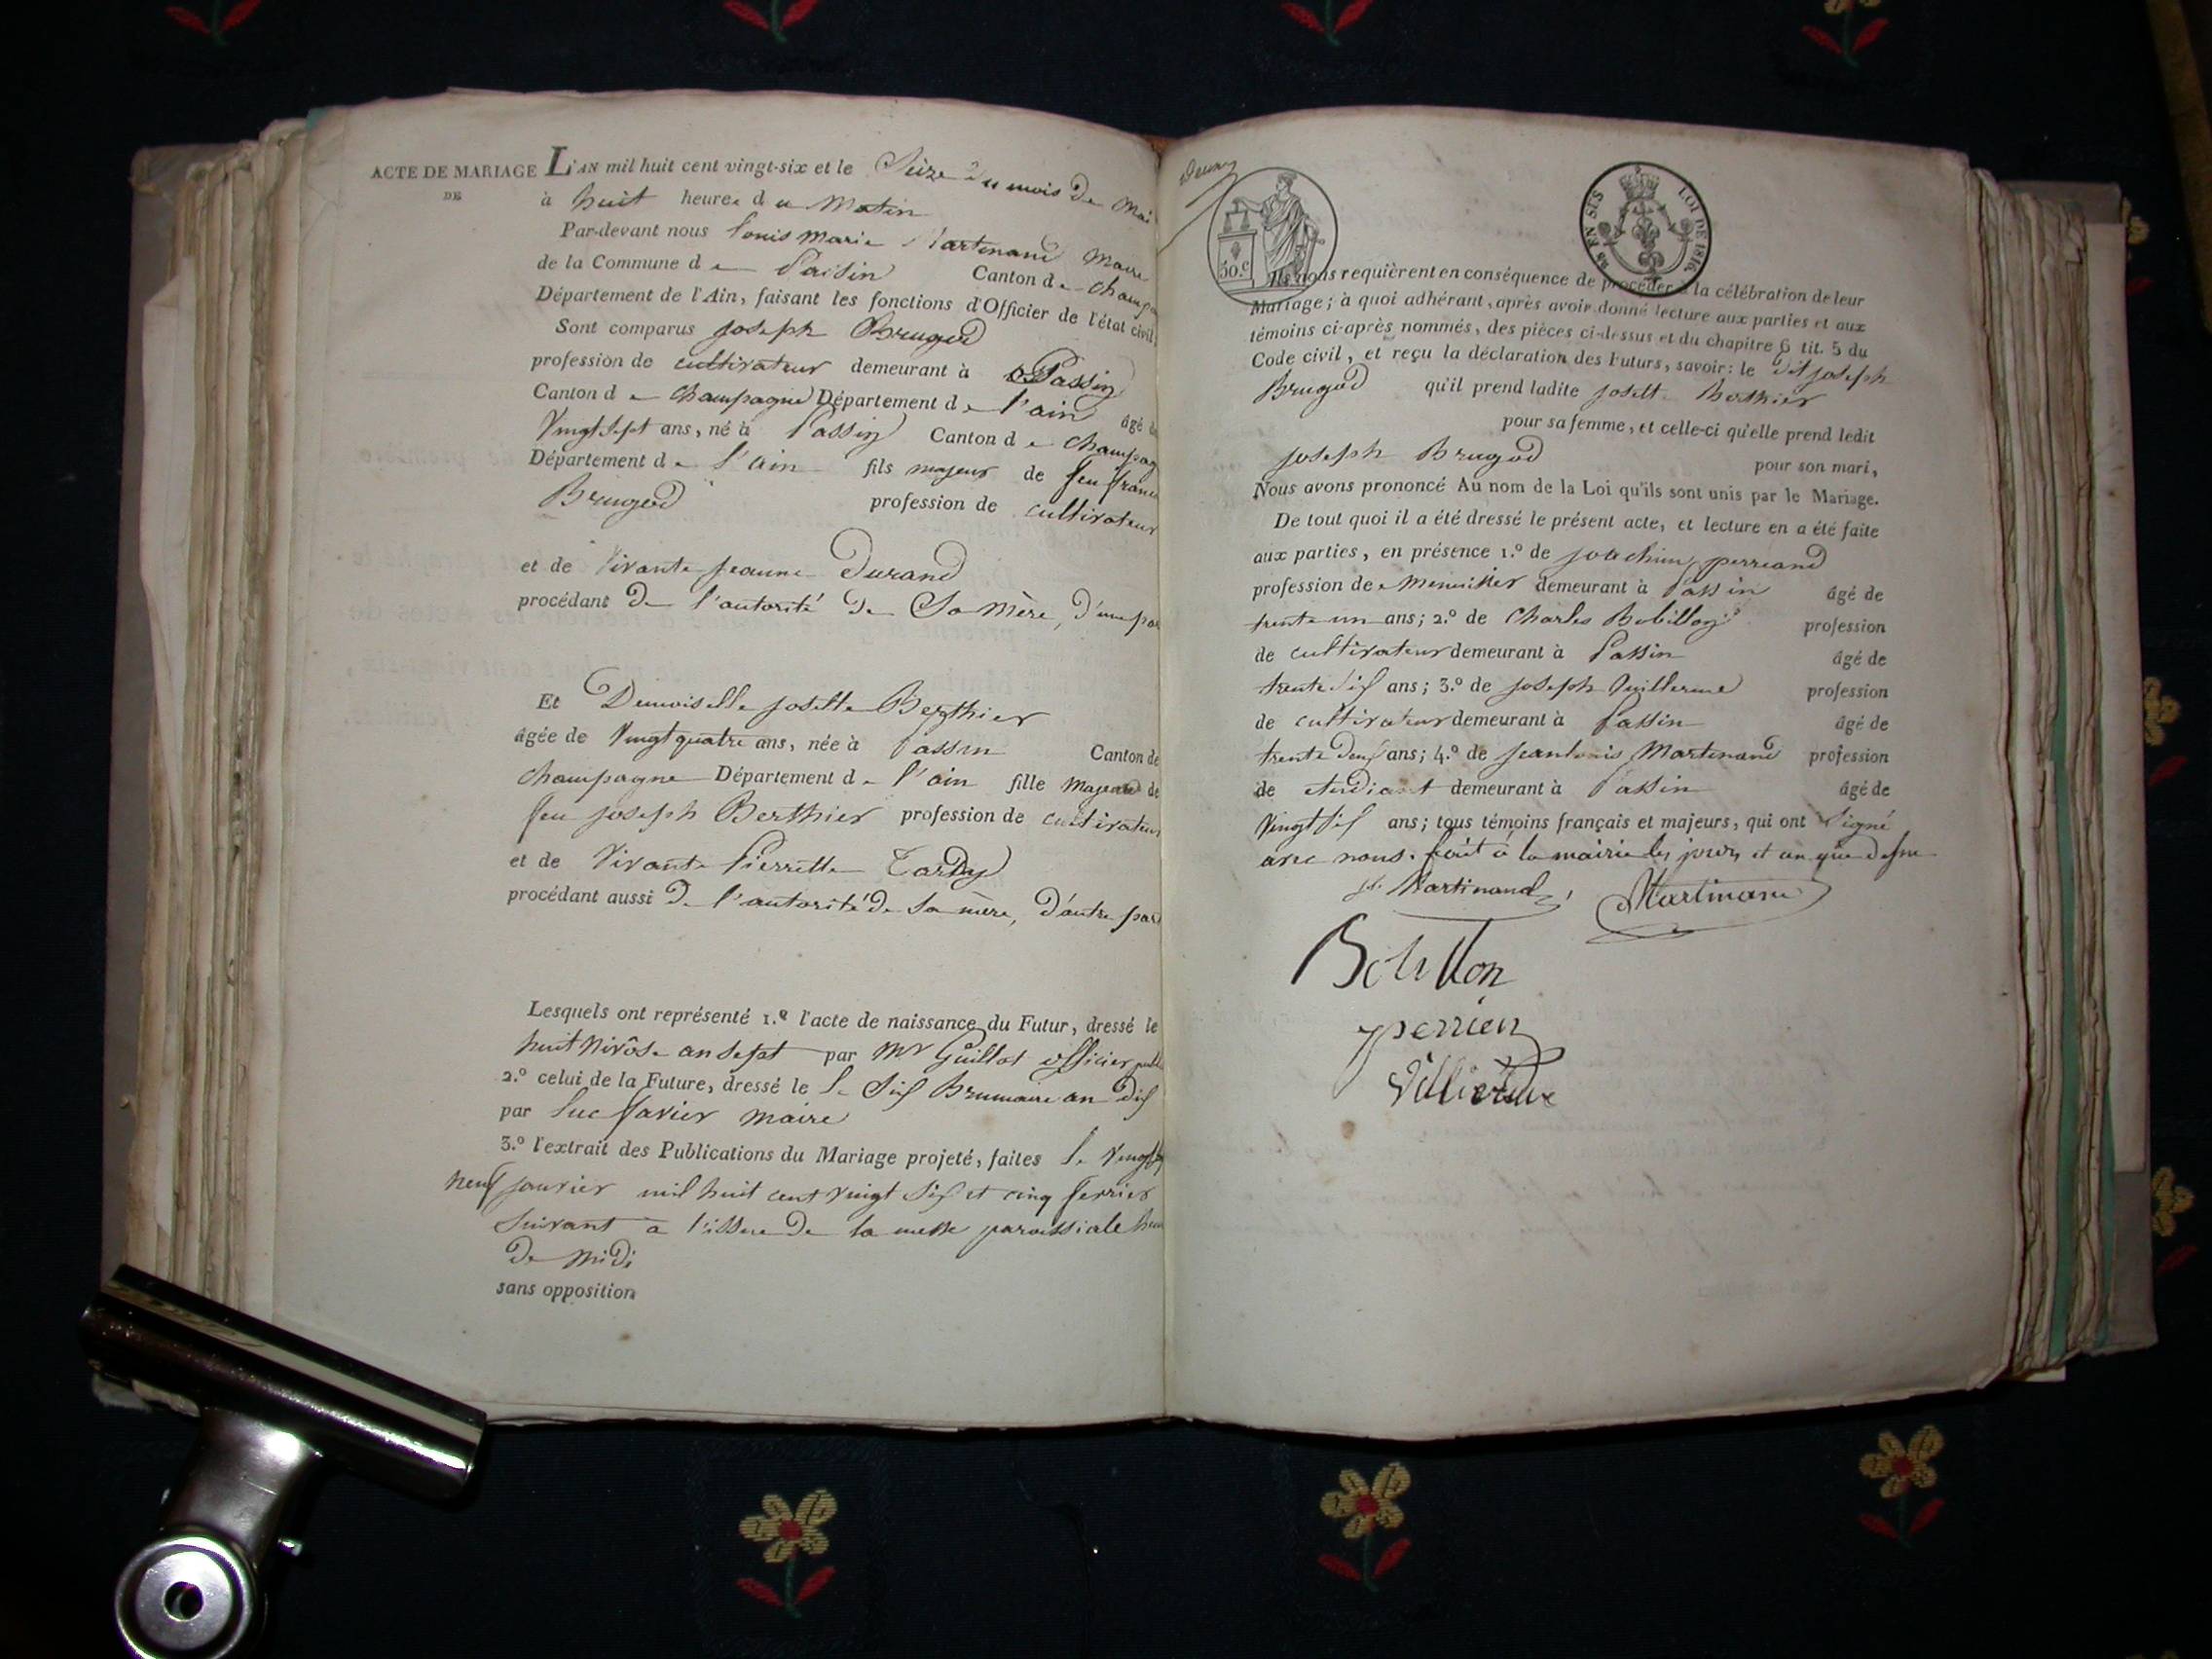 ACTE DE MARIAGE
DE
L'AN mil huit cent vingt-six et le Seize du mois de Mai
à huit heures du Matin
Par-devant nous Louis Marie Martinand Maire
de la Commune de Passin Canton de Champagne
Département de l'Ain, faisant les fonctions d'Officier de l'état civil,
Sont comparus Joseph Brugod
profession de cultivateur demeurant à Passin
Canton de Champagne Département de l'ain âgé de
Vingt Sept ans, né à Passin Canton de Champag
Département de l'ain fils majeur de feu
Brugod profession de cultivateur
et de Vivante Jeanne Durand
procédant De l'autorité De Sa Mère, d'une par
Et Demoiselle Josette Berthier
âgée de Vingt quatre ans, née à Passin Canton de
Champagne Département de l'ain fille Majeure de
feu Joseph Berthier profession de cultivateur
et de Vivante Pierrette Tardy
procédant aussi De l'autorité De Sa mère, d'autre par
Lesquels ont représenté 1.º l'acte de naissance du Futur, dressé le
huit Nivôse an Sept par Mr Guillot officier
2.º celui de la Future, dressé le Le Six Brumaire an Dix
par Luc Savier Maire
3.º l'extrait des Publications du Mariage projeté, faites le Vingt
neuf Janvier mil huit cent Vingt Six et cinq fevrier
Suivant à l'issue De la messe paroissiale
De Midi
sans opposition
30.C
EN SES LOI DE 1816
Ils nous requièrent en conséquence de procéder à la célébration de leur
Mariage; à quoi adhérant, après avoir donné lecture aux parties et aux
témoins ci-après nommés, des pièces ci-dessus et du chapitre 6 tit. 5 du
Code civil, et reçu la déclaration des Futurs, savoir: le dit Joseph
Brugod qu'il prend ladite Josette Berthier
pour sa femme, et celle-ci qu'elle prend ledit
Joseph Brugod pour son mari,
Nous avons prononcé Au nom de la Loi qu'ils sont unis par le Mariage.
De tout quoi il a été dressé le présent acte, et lecture en a été faite
aux parties, en présence 1.º de Joachim
profession de Menuisier demeurant à Passin âgé de
trente un ans; 2.º de Charles Bobillon profession
de cultivateur demeurant à Passin âgé de
trente Six ans; 3.º de Joseph Vuillerme profession
de cultivateur demeurant à Passin âgé de
trente Deux ans; 4.º de Jean Louis Martinand profession
de étudiant demeurant à Passin âgé de
Vingt Six ans; tous témoins français et majeurs, qui ont Signé
avec nous. fait à la mairie les jours et an que dessus
Martinand Martinand
Bobillon